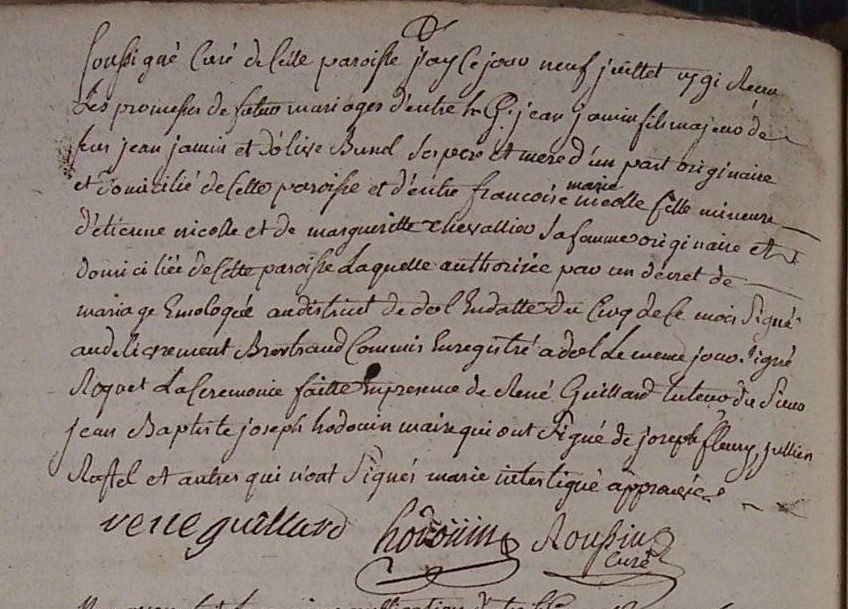 soussigné Curé de Cette paroisse j'ay Ce jour neuf juillet Recu
Les promesses de futur mariages d'entre le jean jamin fils majeur de
feus jean jamin et d'olive Bunel Ses pere et mere d'un part originaire
et domicilié de Cette paroisse et d'entre francoise marie nicolle fille mineure
d'étienne nicolle et de margueritte chevallier Sa famme originaire et
domiciliée de Cette paroisse Laquelle authorisée par un décret de
mariage Emologué au district de dol En datte du Cinq de Ce mois Signé
au delivrement Bertrand Commis Enregistré a dol Le meme jour Signé
Roquet La Ceremonie faitte En presence de René Guillard tuteur du Sieur
jean Baptiste joseph hodouin maire qui ont Signé de joseph fleury, jullien
Raffel et autres qui n'ont Signés marie interligné approuvée
rene guillard hodouin Roussin
Curé